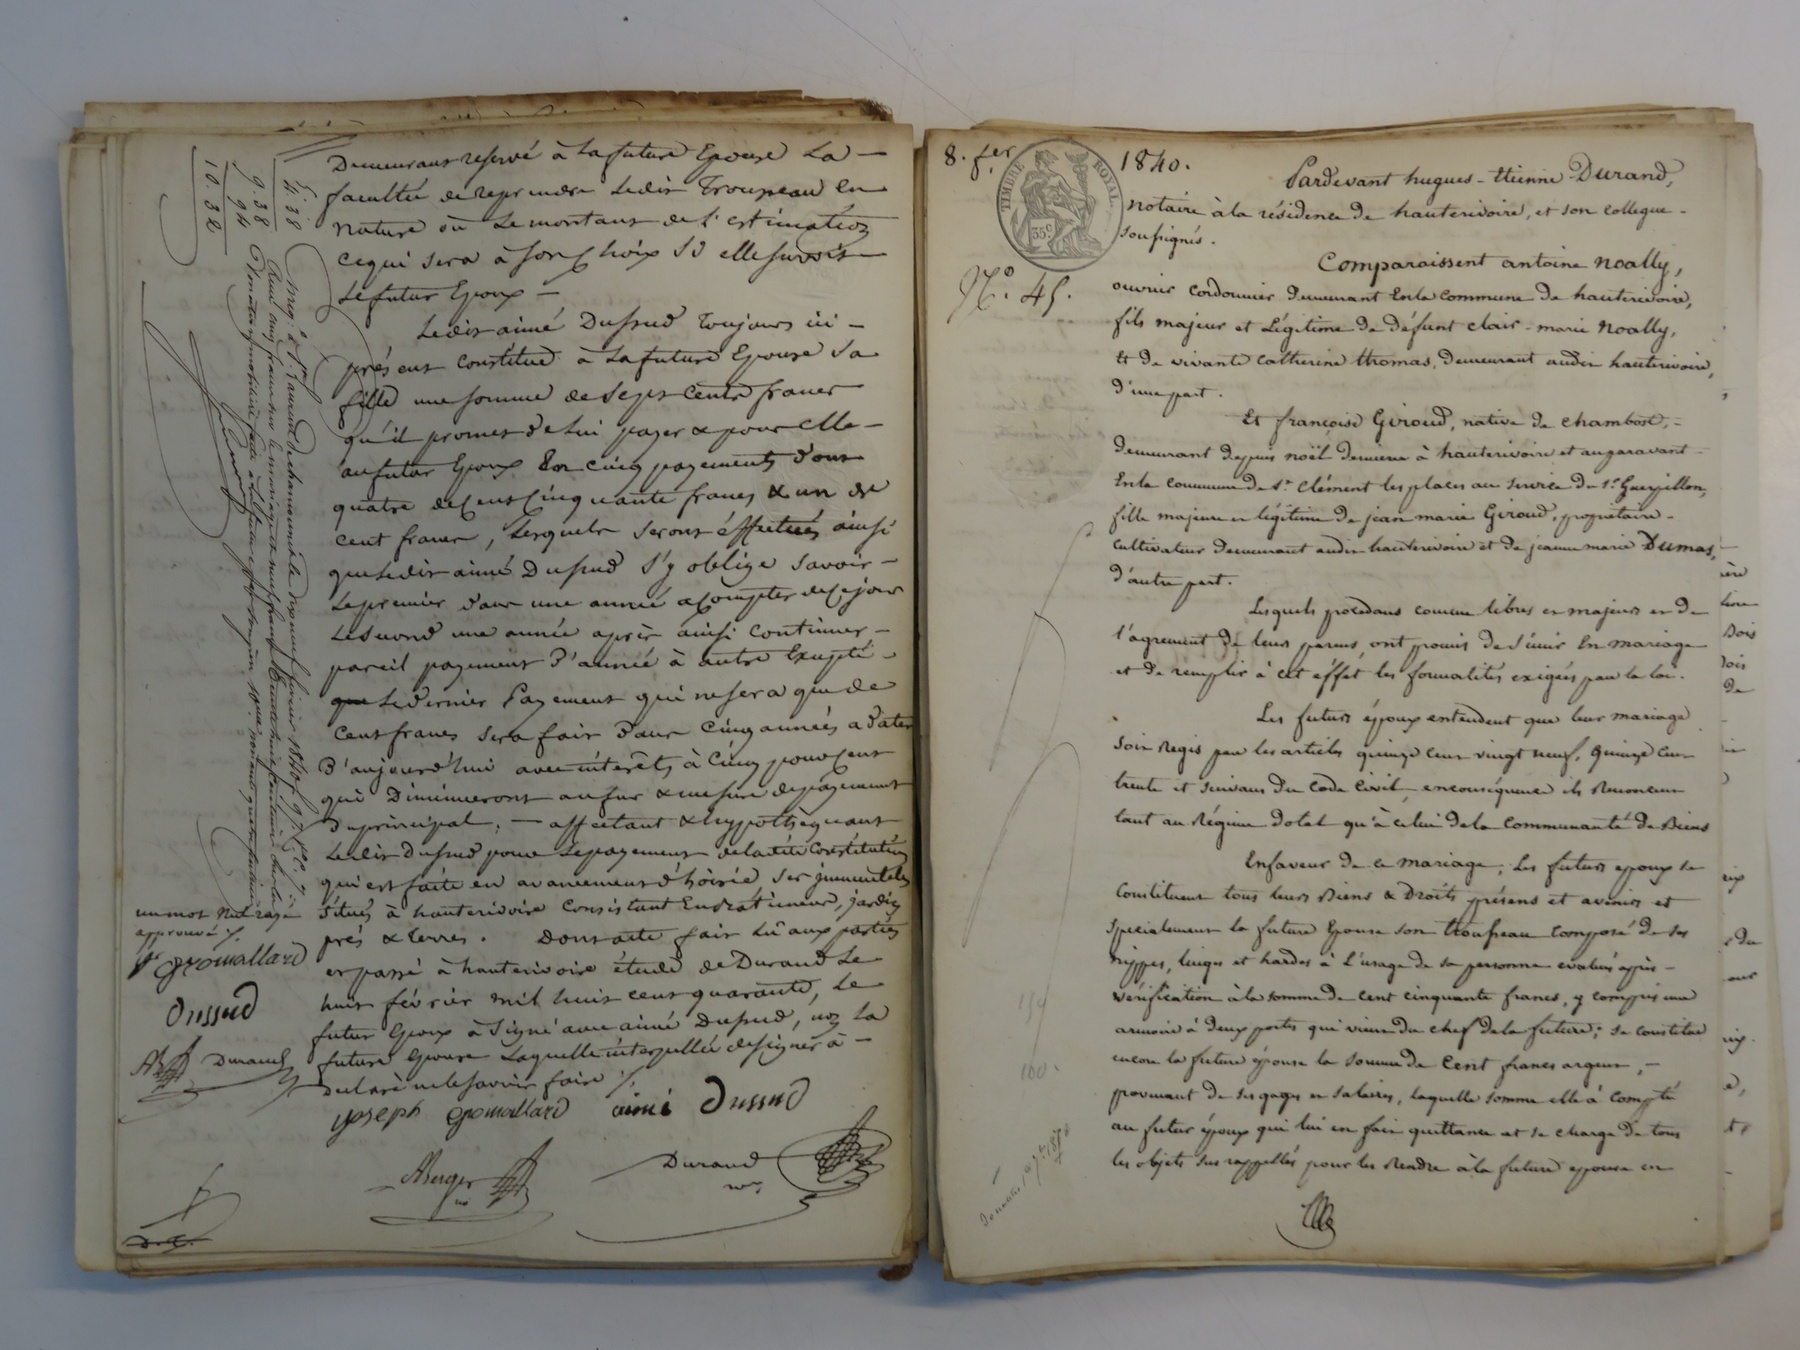 Demeurant reservé à la future Epouse La —
faculté de reprendre Ledit Trousseau en
nature où Le montant de l'estimation
ce qui sera à son Choix si elle survit
Le futur Epoux —
Ledit aimé Dussud toujours ici -
présent constitue à La future Epouse sa
fille une somme de Sept Cents francs
qu'il promet de lui payer & pour elle -
au futur Epoux En cinq payements dont
quatre de Cent Cinquante francs & un de
cent francs, Lesquels seront éffectués ainsi
que Ledit aimé Dussud s'y oblige Savoir -
Le premier dans une année a Compter de Ce jour
Le second une année après ainsi continuer -
pareil payement d'année à autre Excepté -
que Le dernier Payement qui ne sera que de
Cent francs sera fait dans Cinq années a dater
d'aujourd'hui avec intérêts à Cinq pour Cent
qui Diminueront au fur & mesure de payement
du principal ; — affectant & hypothéquant
Ledit Dussud pour Le payement de ladite Constitution
qui est faite en avancement d'hoirie Ses immeubles
Situés à hauterivoire Consistant En batiments, jardin
prés & terres. Dont acte fait Lû aux parties
et passé à hauterivoire étude de Durand Le
huit février mil huit cent quarante, Le
futur Epoux à Signé avec aimé Dussud, non La
future Epouse Laquelle interpellée de signer à —
Declaré ne le savoir faire %.
joseph gromallard aimé Dussud
ABerger no
Durand
nre
un mot nul rayé
approuvé %.
gromallard
Dussud
AB Durand
4. 38
9. 38
94
10. 32
8. fer 1840.
TIMBRE ROYAL
35c
N.° 45.
Pardevant hugues - Etienne Durand,
notaire à la résidence de hauterivoire, et son collegue -
soussignés.
Comparaissent antoine Noally,
ouvrier cordonnier demeurant En la commune de hauterivoire,
fils majeur et Légitime de défunt clair - marie Noally,
Et de vivante Catherine thomas, demeurant audit hauterivoire,
d'une part.
Et françoise Giroud, native de chambost, -
demeurant depuis noël derniere à hauterivoire et auparavant -
En la commune de St. Clément les places au service de Sr Guerpillon,
fille majeure et légitime de jean marie Giroud, propriétaire -
cultivateur demeurant audit hauterivoire et de jeanne marie Dumas,
d'autre part.
Lesquels procedans comme libres et majeurs et de
l'agrement de leurs parens, ont promis de s'unir En mariage
et de remplir à cet éffet les formalités exigées par la loi.
Les futurs époux entendent que leur mariage
soit Regis par les articles quinze cent vingt neuf, quinze cent
trente et suivans du Code Civil, en conséquence ils Renoncent
tant au Régime dotal qu'à celui de la Communauté de Biens
En faveur de ce mariage, Les futurs epoux se
Constituent tous leurs Biens & Droits présens et avenirs et
specialement la future Epouse son trousseau composé de ses
nippes, linges et hardes à L'usage de sa personne evalué après -
vérification à la somme de cent cinquante francs, y compris une
armoire à deux portes qui vient du chef de la future ; se constitue
encore la future épouse la somme de Cent francs argent, -
provenant de ses gages et salaires, laquelle somme elle à compté
au futur époux qui lui en fait quittance et se charge de tous
les objets sus rappellés pour les Rendre à la future epouse en
150
100.